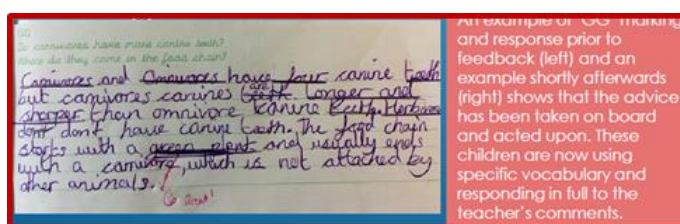 GG
Do carnivores have more canine teeth?
Where do they come in the food chain?
Carnivores and Omnivores have four canine teeth
but carnivores canines are longer and
sharper than omnivore canine teeth. Herbivores
dont don't have canine teeth. The food chain
starts with a green plant and usually ends
with a carnivore, which is not attacked by
other animals.
Great!
An example of 'GG' marking
and response prior to
feedback (left) and an
example shortly afterwards
(right) shows that the advice
has been taken on board
and acted upon. These
children are now using
specific vocabulary and
responding in full to the
teacher's comments.